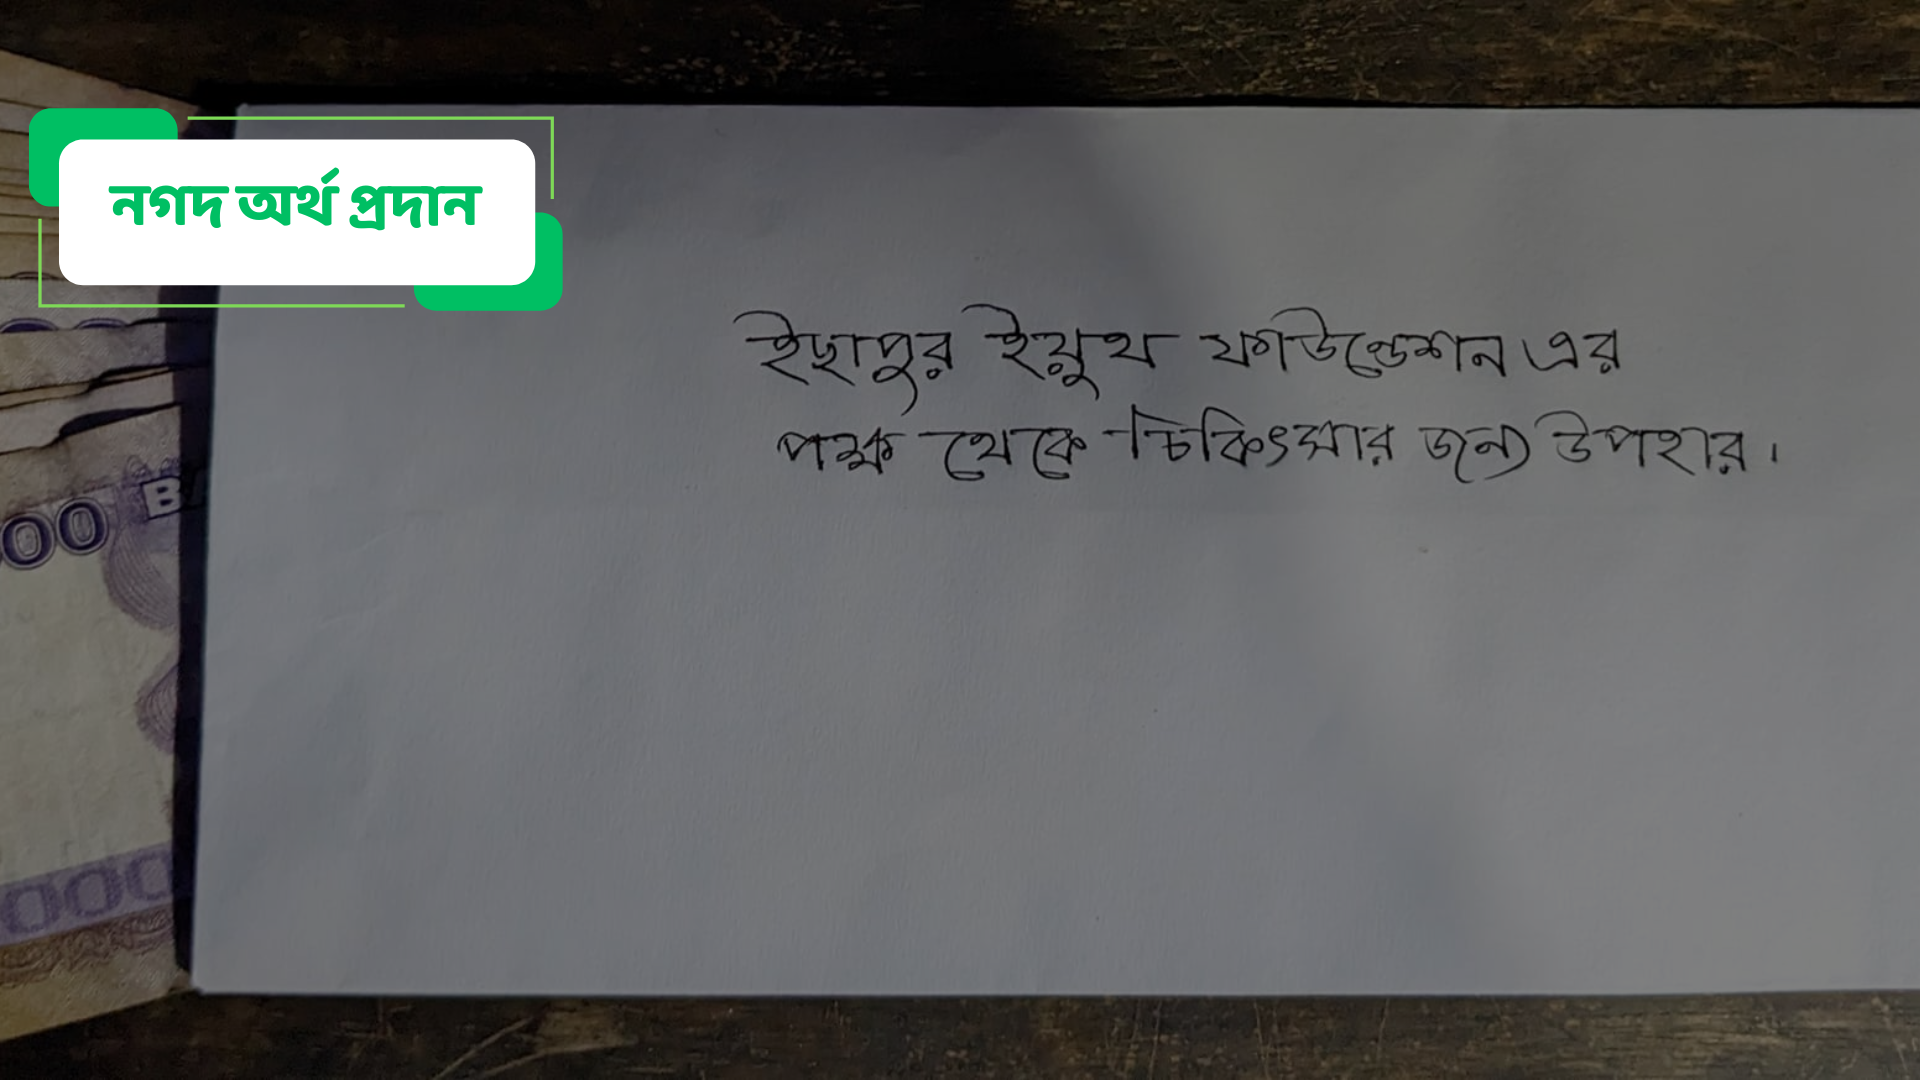 নগদ অর্থ প্রদান
ইছাপুর ইয়ুথ ফাউন্ডেশন এর
পক্ষ থেকে চিকিৎসার জন্য উপহার।
00
000